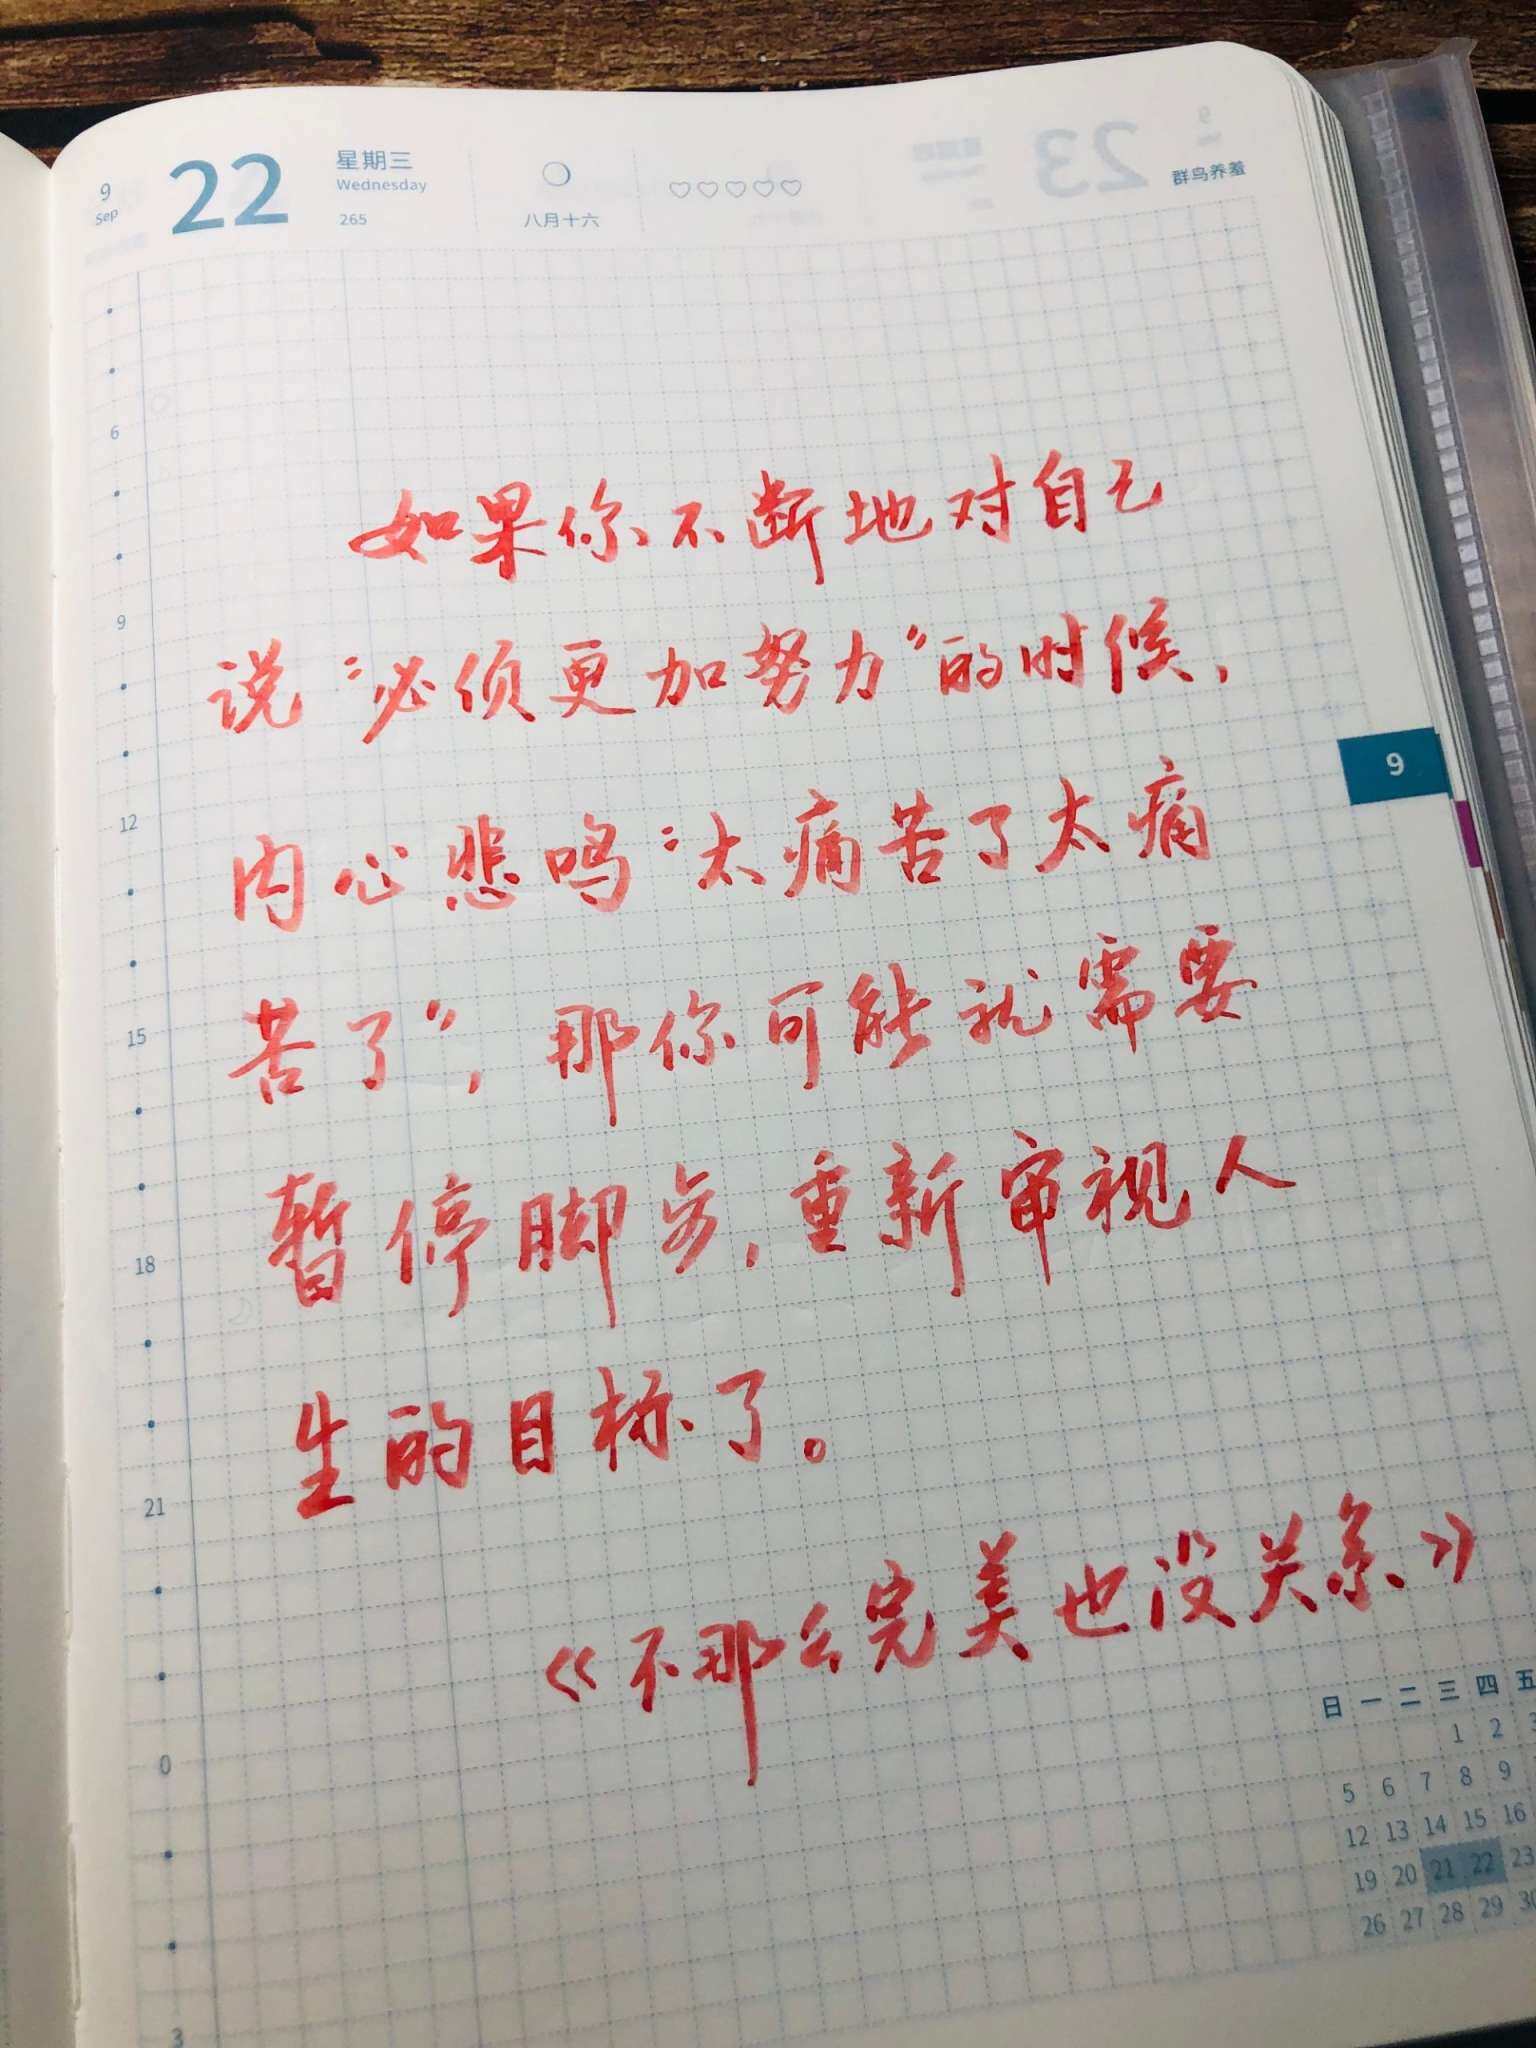 9
Sep
22
星期三
Wednesday
265
八月十六
23
群鸟养羞
6
9
12
15
18
21
0
3
如果你不断地对自己
说“必须更加努力”的时候，
内心悲鸣“太痛苦了太痛
苦了”，那你可能就需要
暂停脚步，重新审视人
生的目标了。
《不那么完美也没关系》
9
日 一 二 三 四 五
1 2 3
5 6 7 8 9
12 13 14 15 16
19 20 21 22 23
26 27 28 29 30